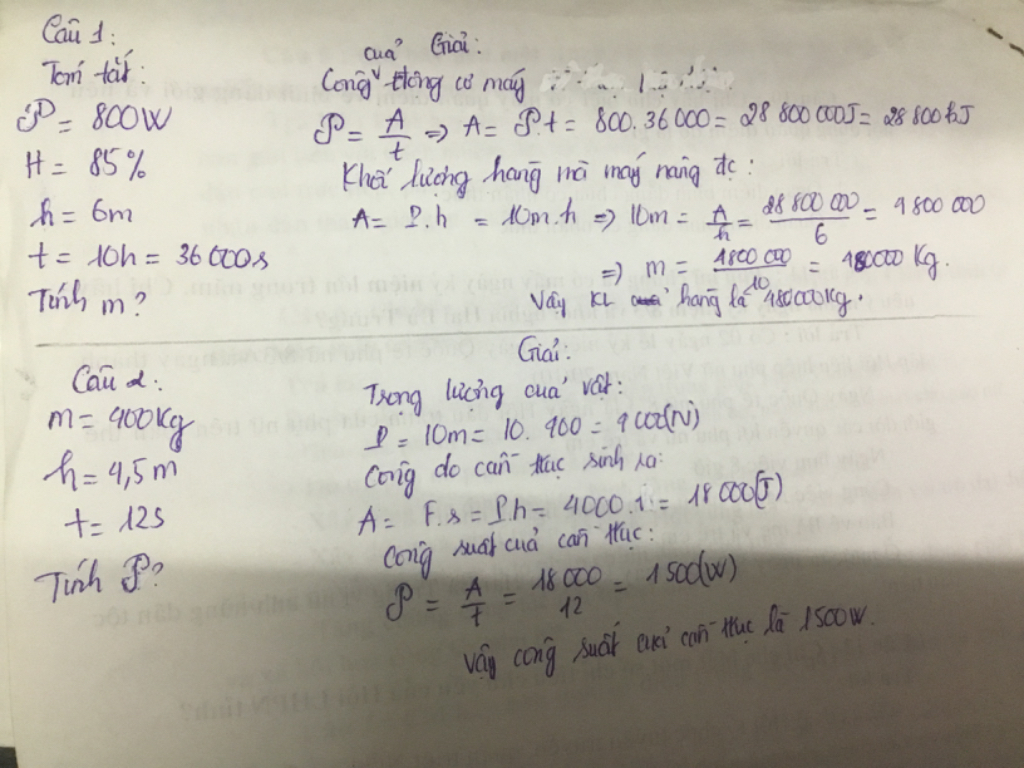 Câu 1:
Tóm tắt:
𝒫 = 800W
H = 85%
h = 6m
t = 10h = 36000s
Tính m?
Giải:
Công của động cơ máy
𝒫 = A/t => A = 𝒫t = 800.36000 = 28 800 000J = 28 800kJ
Khối lượng hàng mà máy nâng đc:
A = P.h = 10m.h => 10m = A/h = 28 800 000/6 = 4800 000
=> m = 4800 000/10 = 480000 Kg.
Vậy KL hàng là 480000Kg.
Câu 2:
m = 400Kg
h = 4,5m
t = 12s
Tính 𝒫?
Giải:
Trọng lượng của vật:
P = 10m = 10.400 = 4000(N)
Công do cần trục sinh ra:
A = F.s = P.h = 4000. = 18000(J)
Công suất của cần trục:
𝒫 = A/t = 18 000/12 = 1500(W)
Vậy công suất của cần trục là 1500W.